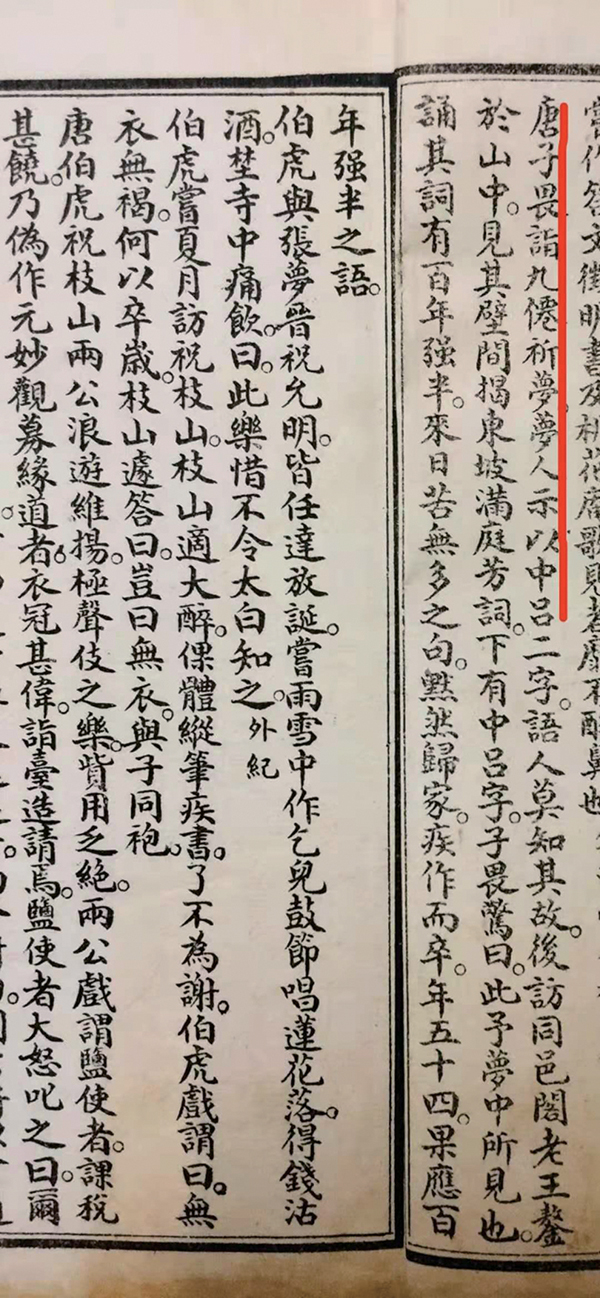 嘗作答文徵明書及桃花庵歌見者靡不酸鼻也
唐子畏詣九僊祈夢夢人示以中呂二字。語人莫知其故。後訪同邑閣老王鏊
於山中。見其壁間揭東坡滿庭芳詞。下有中呂字。子畏驚曰。此予夢中所見也。
誦其詞有百年强半。來日苦無多之句。黙然歸家。疾作而卒。年五十四。果應百
年强半之語。
伯虎與張夢晉祝允明。皆任達放誕。嘗雨雪中作乞兒鼓節唱蓮花落。得錢沽
酒。埜寺中痛飲。曰。此樂惜不令太白知之。外紀
伯虎嘗夏月訪祝枝山。枝山適大醉。倮體縱筆疾書。了不為謝。伯虎戲謂曰。無
衣無褐。何以卒歲。枝山遽答曰。豈曰無衣。與子同袍。
唐伯虎祝枝山兩公浪遊維揚。極聲伎之樂。貲用乏絶。兩公戲謂鹽使者。課稅
甚饒。乃偽作元妙觀募緣道者。衣冠甚偉。詣臺造請焉。鹽使者大怒叱之曰。爾